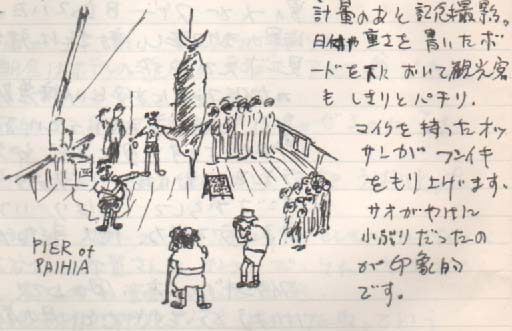 計量のあと記念撮影。
日付や重さを書いたボ
ードを下において観光客
もしきりとパチリ.
マイクを持ったオッ
サンがフンイキ
をもり上げます.
サオがやけに
小ぶりだったの
が印象的
です.
PIER of
PAIHIA